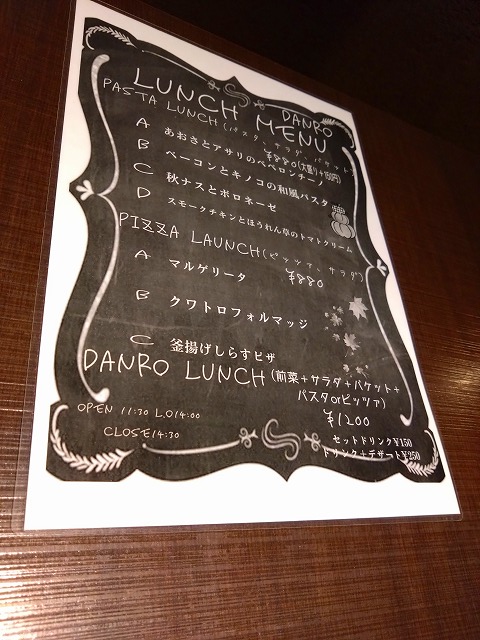 LUNCH MENU
DANRO
PASTA LUNCH (パスタ、サラダ、バケット)
¥880(大盛り+150円)
A あおさとアサリのペペロンチーノ
B ベーコンとキノコの和風パスタ
C 秋ナスとボロネーゼ
D スモークチキンとほうれん草のトマトクリーム
PIZZA LAUNCH (ピッツァ、サラダ)
A マルゲリータ ¥880
B クワトロフォルマッジ
C 釜揚げしらすピザ
DANRO LUNCH (前菜+サラダ+バケット+
パスタorピッツァ)
¥1200
OPEN 11:30 L.O14:00
CLOSE14:30
セットドリンク¥150
ドリンク+デザート¥250